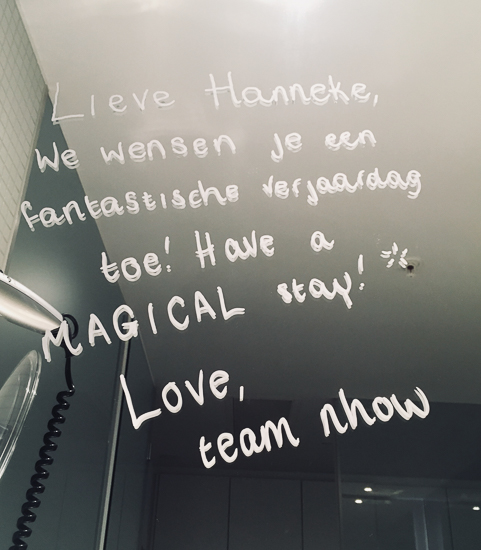 Lieve Hanneke,
We wensen je een
fantastische verjaardag
toe! Have a
MAGICAL stay!
Love,
team nhow